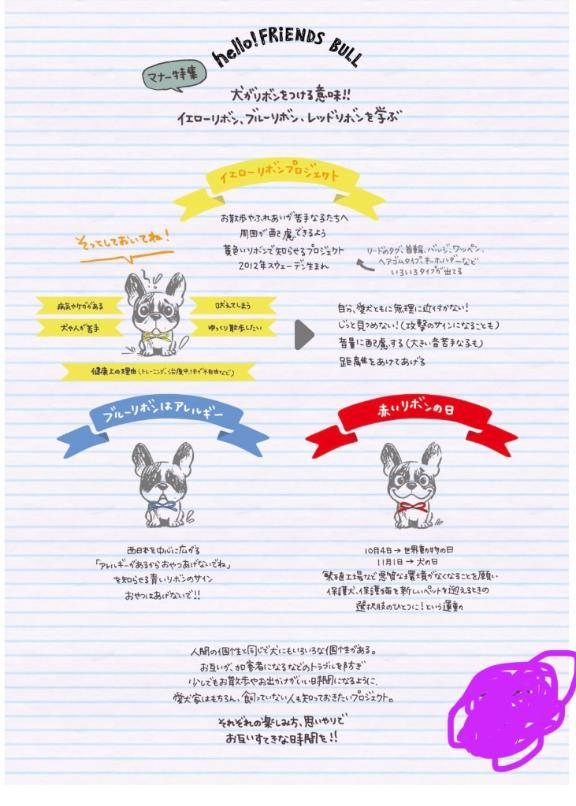 hello! FRiENDS BULL
マナー特集
犬がリボンをつける意味!!
イエローリボン、ブルーリボン、レッドリボンを学ぶ
イエローリボンプロジェクト
お散歩やふれあいが苦手な子たちへ
周囲が配慮できるよう
黄色いリボンで知らせるプロジェクト
2012年スウェーデン生まれ
リードのタグ、首輪、バッジ、ワッペン、
ヘアゴムタイプ、キーホルダーなど
いろいろタイプが出てる
そっとしておいてね!
病気やケガがある
吠えてしまう
犬や人が苦手
ゆっくり散歩したい
健康上の理由(トレーニング、治療中、体が不自由など)
自分、愛犬ともに無理に近付かない!
じっと見つめない!(攻撃のサインになることも)
音量に配慮する(大きい音苦手な子も)
距離をあけてあげる
ブルーリボンはアレルギー
赤いリボンの日
西日本を中心に広がる
「アレルギーがあるからおやつあげないでね」
を知らせる青いリボンのサイン
おやつはあげないで!!
10月4日→世界動物の日
11月1日→犬の日
繁殖工場など悪質な環境がなくなることを願い
保護犬、保護猫を新しいペットを迎えるときの
選択肢のひとつに!という運動
人間の個性と同じで犬にもいろいろな個性がある。
お互いが、加害者になるなどのトラブルを防ぎ
少しでもお散歩やお出かけがいい時間になるように、
愛犬家はもちろん、飼っていない人も知っておきたいプロジェクト。
それぞれの楽しみ方、思いやりで
お互いすてきな時間を!!